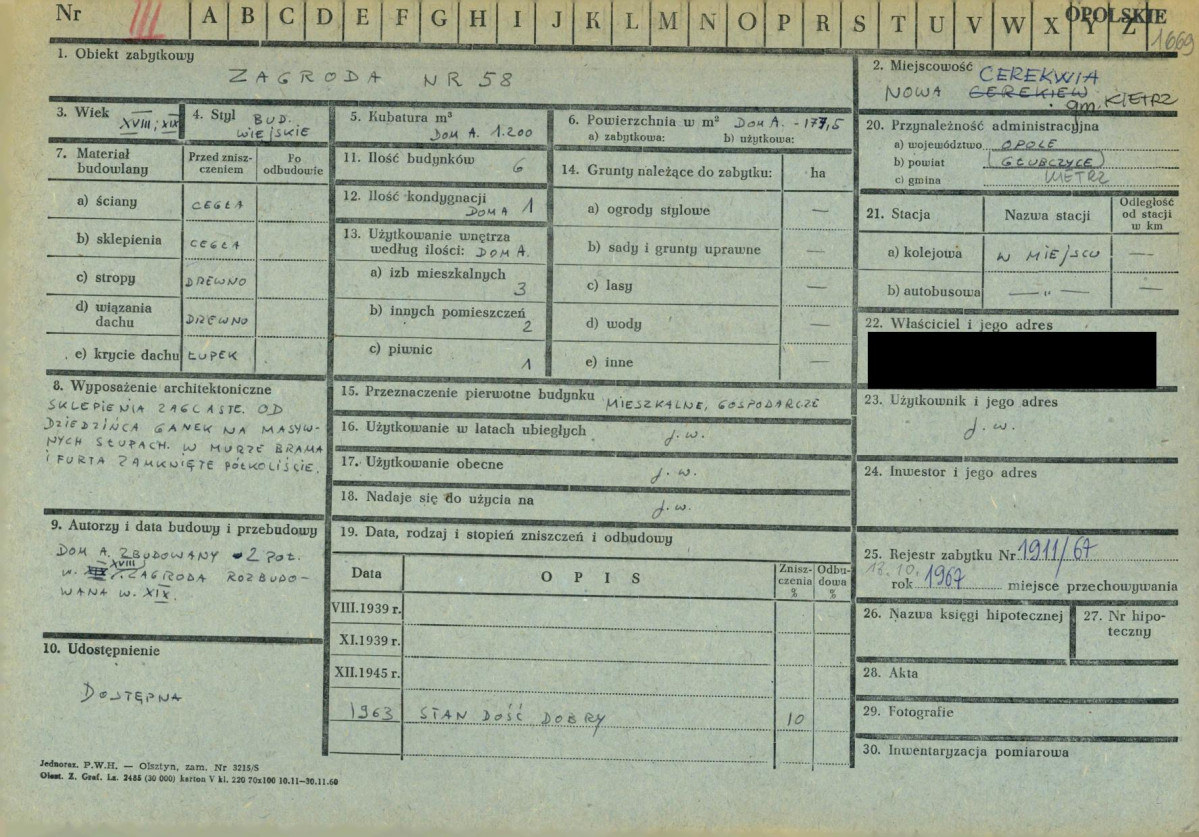 Nr III A B C D E F G H I J K L M N O P R S T U V W X Y Z OPOLSKIE
1669
1. Obiekt zabytkowy
ZAGRODA NR 58
2. Miejscowość CEREKWIA
NOWA CEREKIEW gm. KIETRZ
3. Wiek XVIII; XIX
4. Styl BUD. WIEJSKIE
5. Kubatura m³
DOM A. 1.200
6. Powierzchnia w m² DOM A. - 177,5
a) zabytkowa: b) użytkowa:
7. Materiał budowlany
Przed zniszczeniem
Po odbudowie
a) ściany CEGŁA
b) sklepienia CEGŁA
c) stropy DREWNO
d) wiązania dachu DREWNO
e) krycie dachu ŁUPEK
8. Wyposażenie architektoniczne
SKLEPIENIA ŻAGLASTE. OD
DZIEDZIŃCA GANEK NA MASYW-
NYCH SŁUPACH. W MURZE BRAMA
I FURTA ZAMKNIĘTE PÓŁKOLIŚCIE.
9. Autorzy i data budowy i przebudowy
DOM A. ZBUDOWANY 2 POŁ.
w. XVIII. ZAGRODA ROZBUDO-
WANA W. XIX.
10. Udostępnienie
DOSTĘPNA
11. Ilość budynków 6
12. Ilość kondygnacji
DOM A 1
13. Użytkowanie wnętrza
według ilości: DOM A.
a) izb mieszkalnych
3
b) innych pomieszczeń
2
c) piwnic
1
14. Grunty należące do zabytku: ha
a) ogrody stylowe —
b) sady i grunty uprawne —
c) lasy —
d) wody —
e) inne —
15. Przeznaczenie pierwotne budynku MIESZKALNE, GOSPODARCZE
16. Użytkowanie w latach ubiegłych j. w.
17. Użytkowanie obecne j. w.
18. Nadaje się do użycia na j. w.
19. Data, rodzaj i stopień zniszczeń i odbudowy
Data OPIS Zniszczenia % Odbudowa %
VIII.1939 r.
XI.1939 r.
XII.1945 r.
1963 STAN DOŚĆ DOBRY 10
20. Przynależność administracyjna
a) województwo OPOLE
b) powiat (GŁUBCZYCE)
c) gmina KIETRZ
21. Stacja Nazwa stacji Odległość od stacji w km
a) kolejowa W MIEJSCU —
b) autobusowa — „ — —
22. Właściciel i jego adres
23. Użytkownik i jego adres
j. w.
24. Inwestor i jego adres
25. Rejestr zabytku Nr 1911/67
13.10.
rok 1967 miejsce przechowywania
26. Nazwa księgi hipotecznej
27. Nr hipoteczny
28. Akta
29. Fotografie
30. Inwentaryzacja pomiarowa
Jednoraz. P.W.H. — Olsztyn, zam. Nr 3215/S
Olszt. Z. Graf. Lz. 2485 (30 000) karton V kl. 220 70x100 10.11—30.11.60